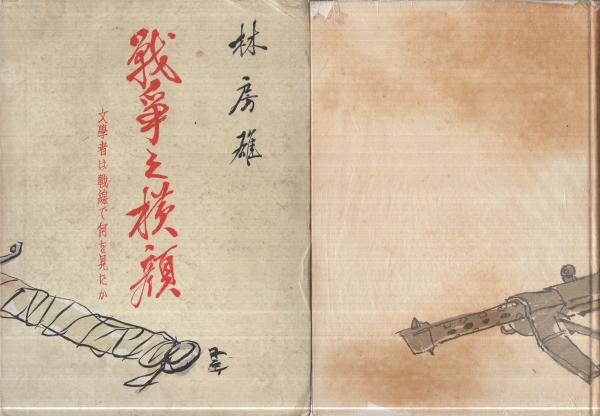 林房雄
戰爭之横顔
文學者は戰線で何を見たか